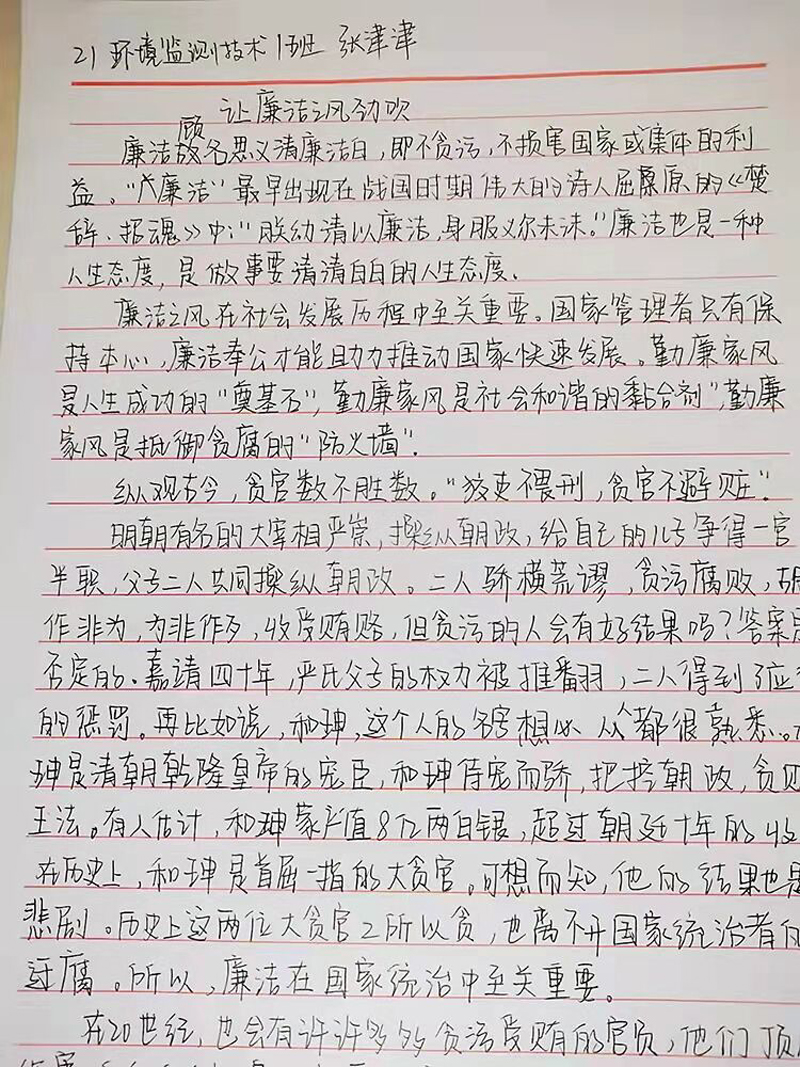 21环境监测技术1班 张津津
让廉洁之风劲吹
廉洁顾名思义清廉洁白，即不贪污，不损害国家或集体的利
益。"廉洁"最早出现在战国时期伟大的诗人屈原的《楚
辞·招魂》中："朕幼清以廉洁，身服义尔未沫。"廉洁也是一种
人生态度，是做事要清清白白的人生态度.
廉洁之风在社会发展历程中至关重要。国家管理者只有保
持本心，廉洁奉公才能助力推动国家快速发展。勤廉家风
是人生成功的"奠基石"，勤廉家风是社会和谐的黏合剂"，勤廉
家风是抵御贪腐的"防火墙".
纵观古今，贪官数不胜数。"狡吏不畏刑，贪官不避赃".
明朝有名的大宰相严崇，操纵朝政，给自己的儿子争得一官
半职，父子二人共同操纵朝政。二人骄横荒谬，贪污腐败，胡
作非为，为非作歹，收受贿赂，但贪污的人会有好结果吗？答案是
否定的.嘉靖四十年，严氏父子的权力被推翻，二人得到了应
的惩罚。再比如说，和珅，这个人的名字想必人人都很熟悉。
珅是清朝乾隆皇帝的宠臣，和珅侍宠而骄，把控朝政，贪
王法。有人估计，和珅家产值8亿两白银，超过朝廷十年的收
在历史上，和珅是首屈一指的大贪官。可想而知，他的结果也是
悲剧。历史上这两位大贪官之所以贪，也离不开国家统治者的
迂腐。所以，廉洁在国家统治中至关重要。
在20世纪，也会有许许多多贪污受贿的官员，他们顶